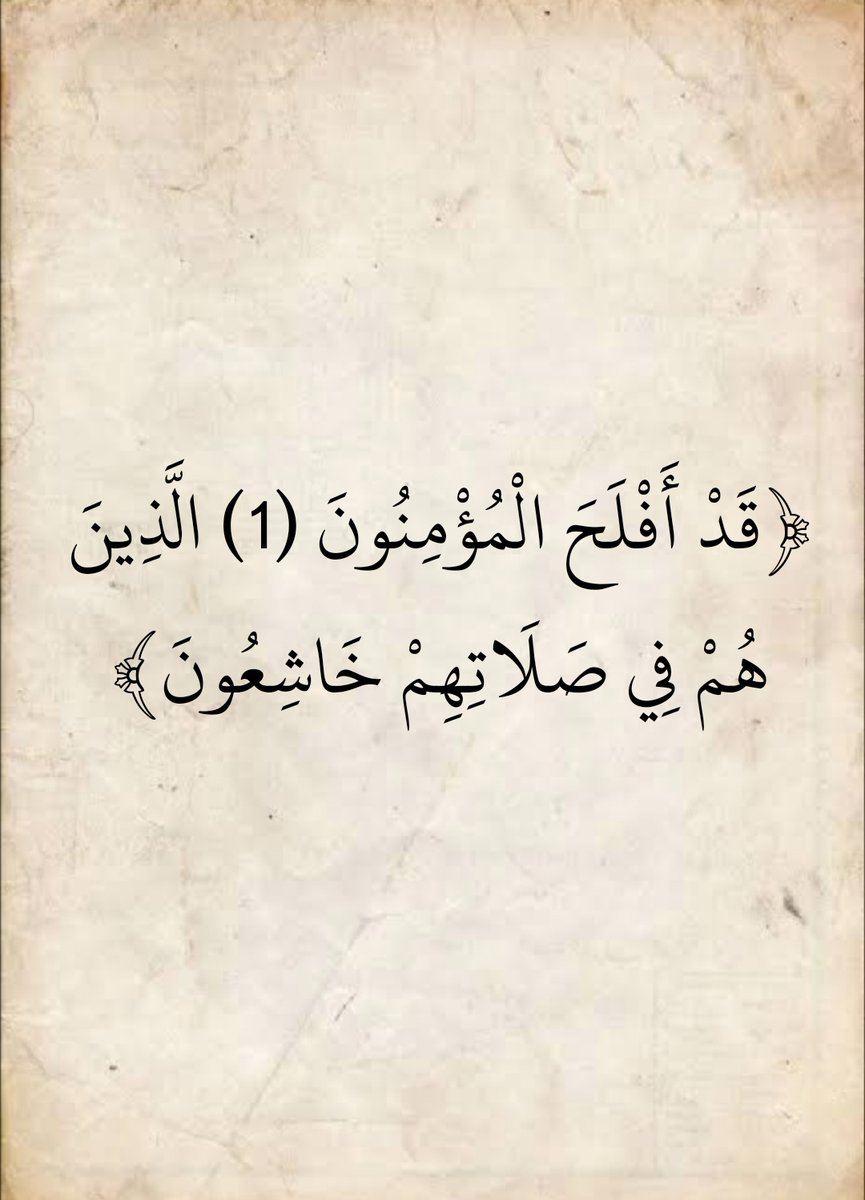 ﴿قَدْ أَفْلَحَ الْمُؤْمِنُونَ (1) الَّذِينَ
هُمْ فِي صَلَاتِهِمْ خَاشِعُونَ﴾